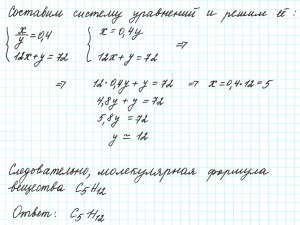 Составим систему уравнений и решим её:
{ x/y = 0,4 { x = 0,4y
12x + y = 72 12x + y = 72 ⇒
⇒ 12·0,4y + y = 72 ⇒ x = 0,4·12 = 5
4,8y + y = 72
5,8y = 72
y ≃ 12
Следовательно, молекулярная формула
вещества C₅H₁₂
Ответ: C₅H₁₂